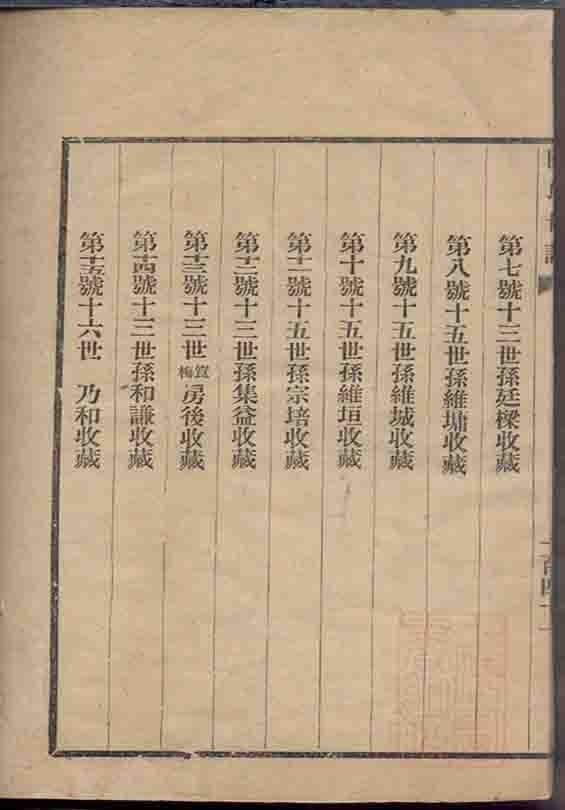 第七號十三世孫廷樑收藏
第八號十五世孫維墉收藏
第九號十五世孫維城收藏
第十號十五世孫維垣收藏
第十一號十五世孫宗培收藏
第十二號十三世孫集益收藏
第十三號十三世梅房後收藏
第十四號十三世孫和謙收藏
第十五號十六世 乃和收藏